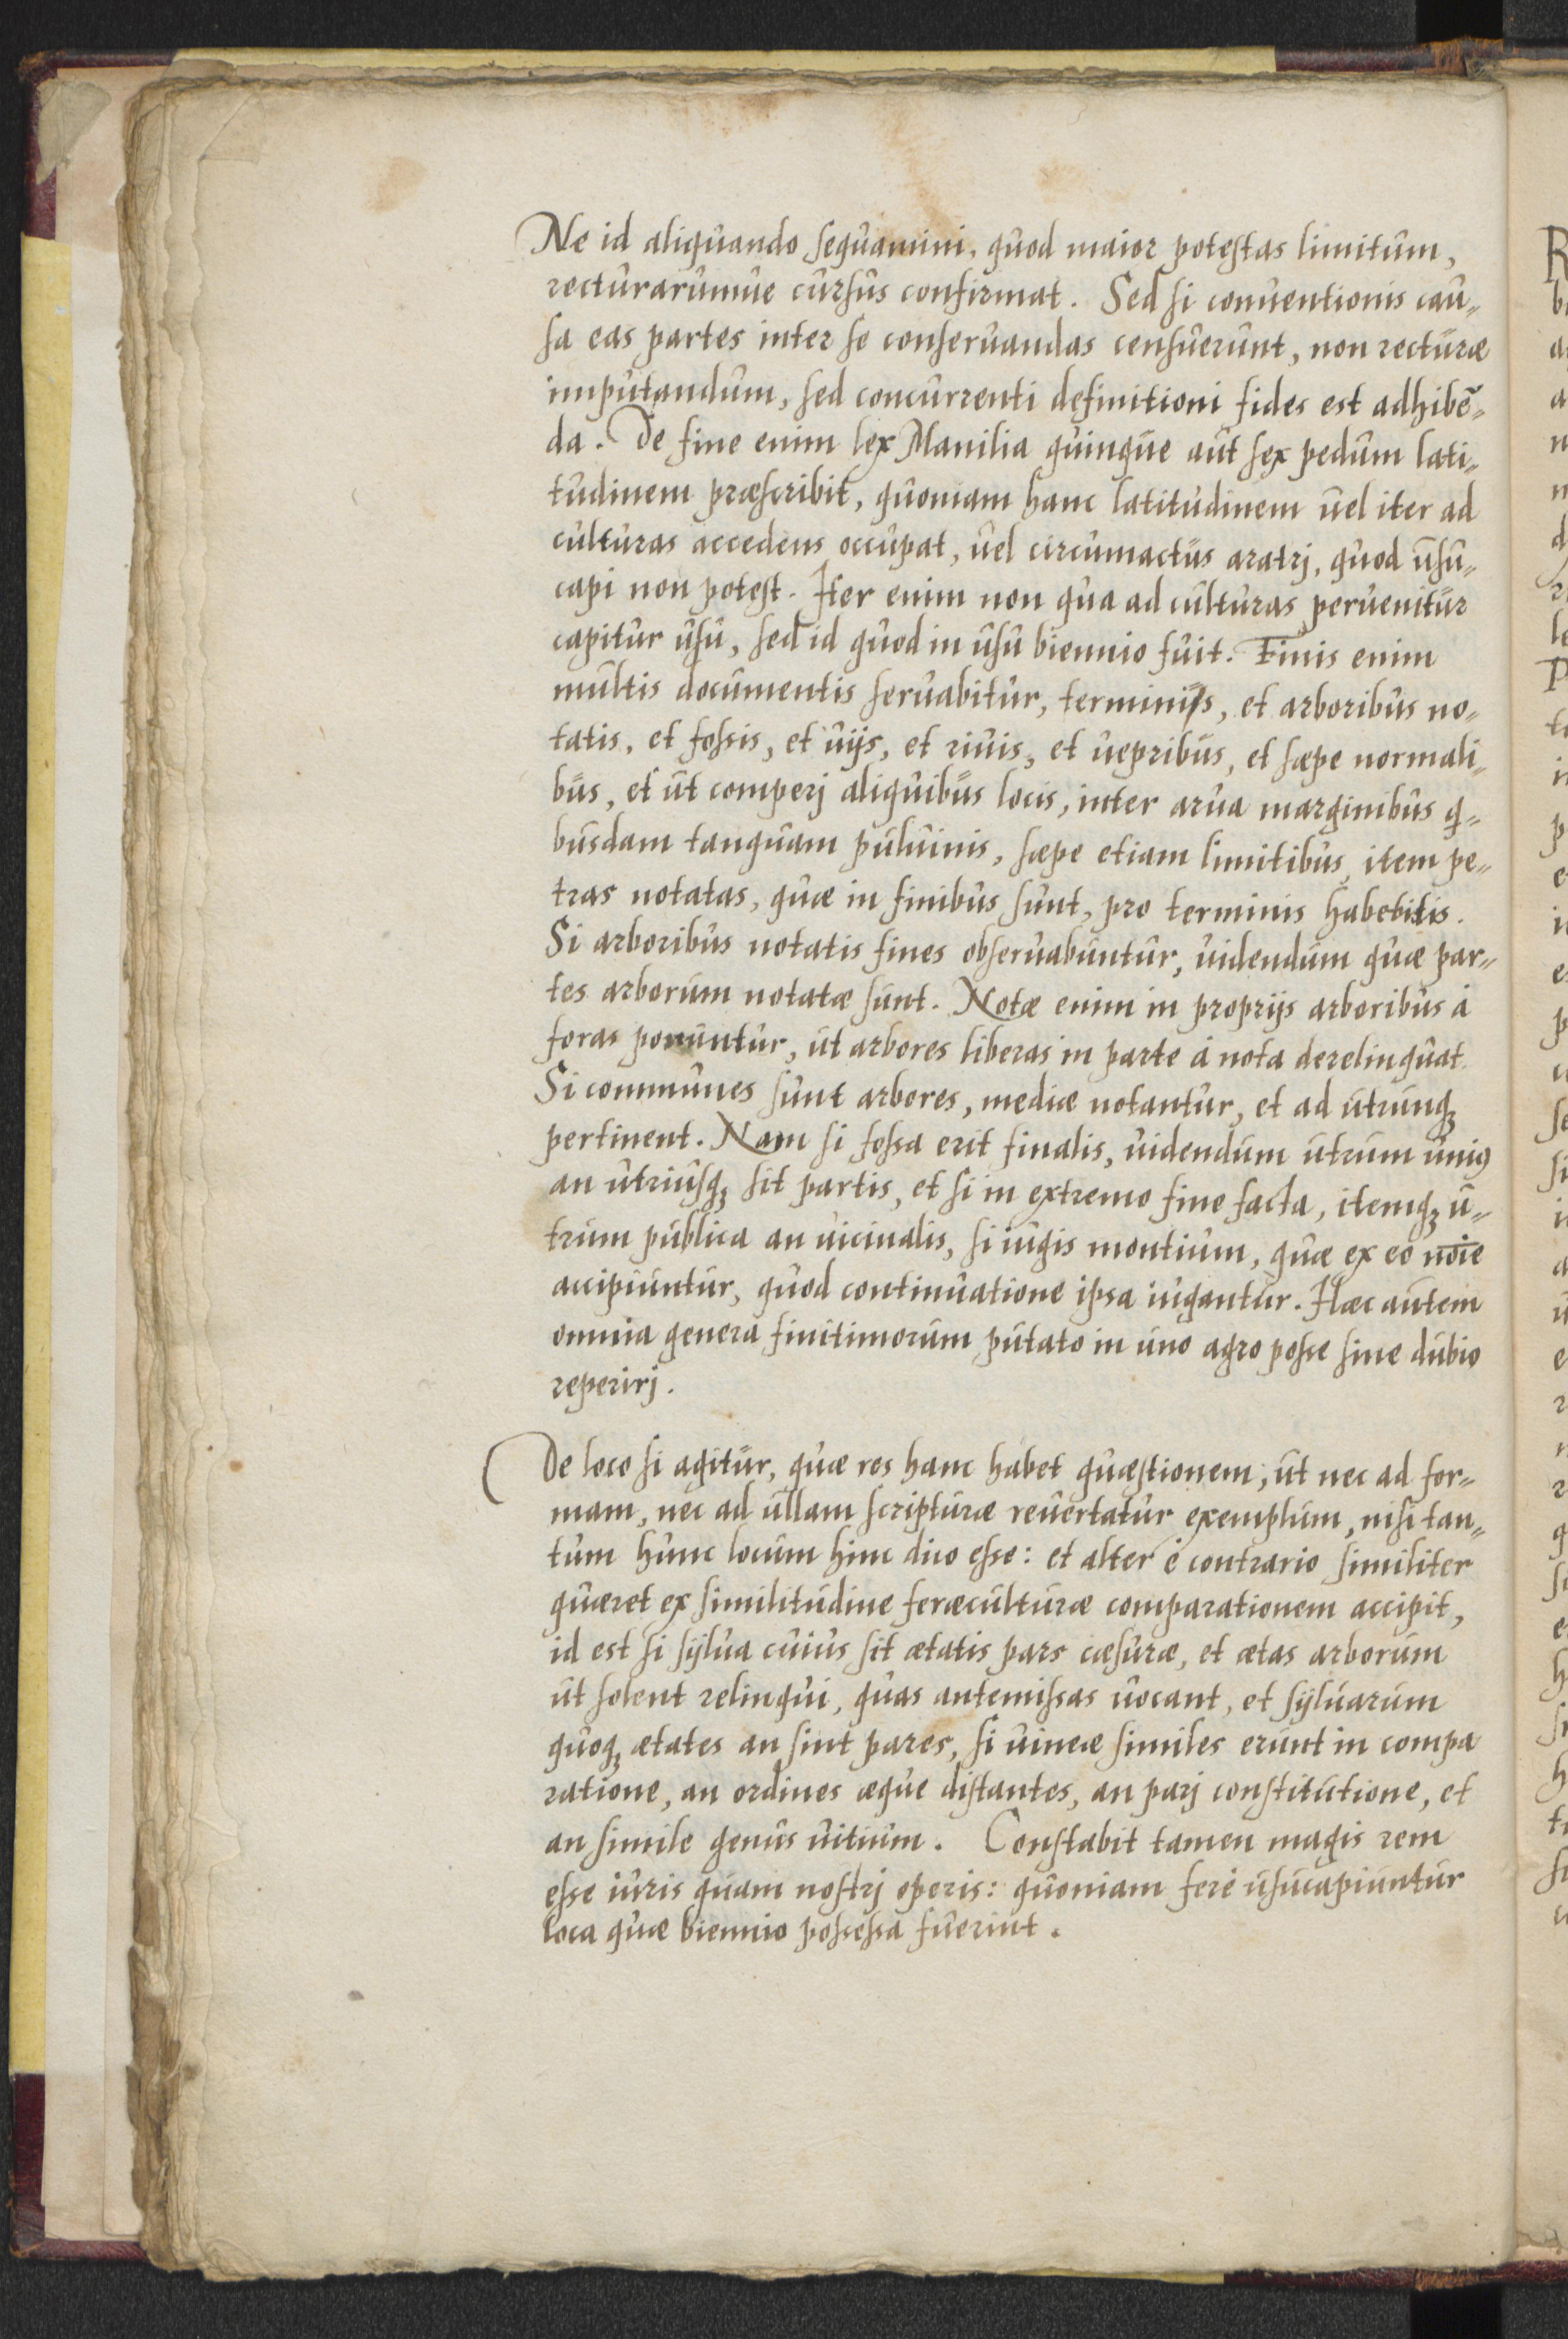 Ne id aliquando sequamini, quod maior potestas limitum,
recturarumue cursus confirmat. Sed si conuentionis cau-
sa eas partes inter se conseruandas censuerunt, non recturæ
imputandum, sed concurrenti definitioni fides est adhibē-
da. De fine enim lex Manilia quinque aut sex pedum lati-
tudinem præscribit, quoniam hanc latitudinem uel iter ad
culturas accedens occupat, uel circumactus aratrj, quod usu-
capi non potest. Iter enim non qua ad culturas peruenitur
capitur usu, sed id quod in usu biennio fuit. Finis enim
multis documentis seruabitur, terminis, et arboribus no-
tatis, et fossis, et uijs, et riuis, et uepribus, et sæpe normali-
bus, et ut comperj aliquibus locis, inter arua marginibus q-
busdam tanquam puluinis, sæpe etiam limitibus, item pe-
tras notatas, quæ in finibus sunt, pro terminis habebitis.
Si arboribus notatis fines obseruabuntur, uidendum quæ par-
tes arborum notatæ sunt. Notæ enim in proprijs arboribus à
foras ponuntur, ut arbores liberas in parte à nota derelinquat.
Si communes sunt arbores, mediæ notantur, et ad utrunqꝫ
pertinent. Nam si fossa erit finalis, uidendum utrum uniꝰ
an utriusqꝫ sit partis, et si in extremo fine facta, itemqꝫ u-
trum publica an uicinalis, si iugis montium, quæ ex eo noīe
accipiuntur, quod continuatione ipsa iugantur. Hæc autem
omnia genera finitimorum putato in uno agro posse sine dubio
reperirj.
De loco si agitur, quæ res hanc habet quæstionem, ut nec ad for-
mam, nec ad ullam scripturæ reuertatur exemplum, nisi tan-
tum hunc locum hinc dico esse: et alter è contrario similiter
quæret ex similitudine feræculturæ comparationem accipit,
id est si sylua cuius sit ætatis pars cæsuræ, et ætas arborum
ut solent relinqui, quas antemissas uocant, et syluarum
quoqꝫ ætates an sint pares, si uineæ similes erunt in compa
ratione, an ordines æque distantes, an parj constitutione, et
an simile genus uitium. Constabit tamen magis rem
esse iuris quam nostrj operis: quoniam ferè usucapiuntur
loca quæ biennio possessa fuerint.